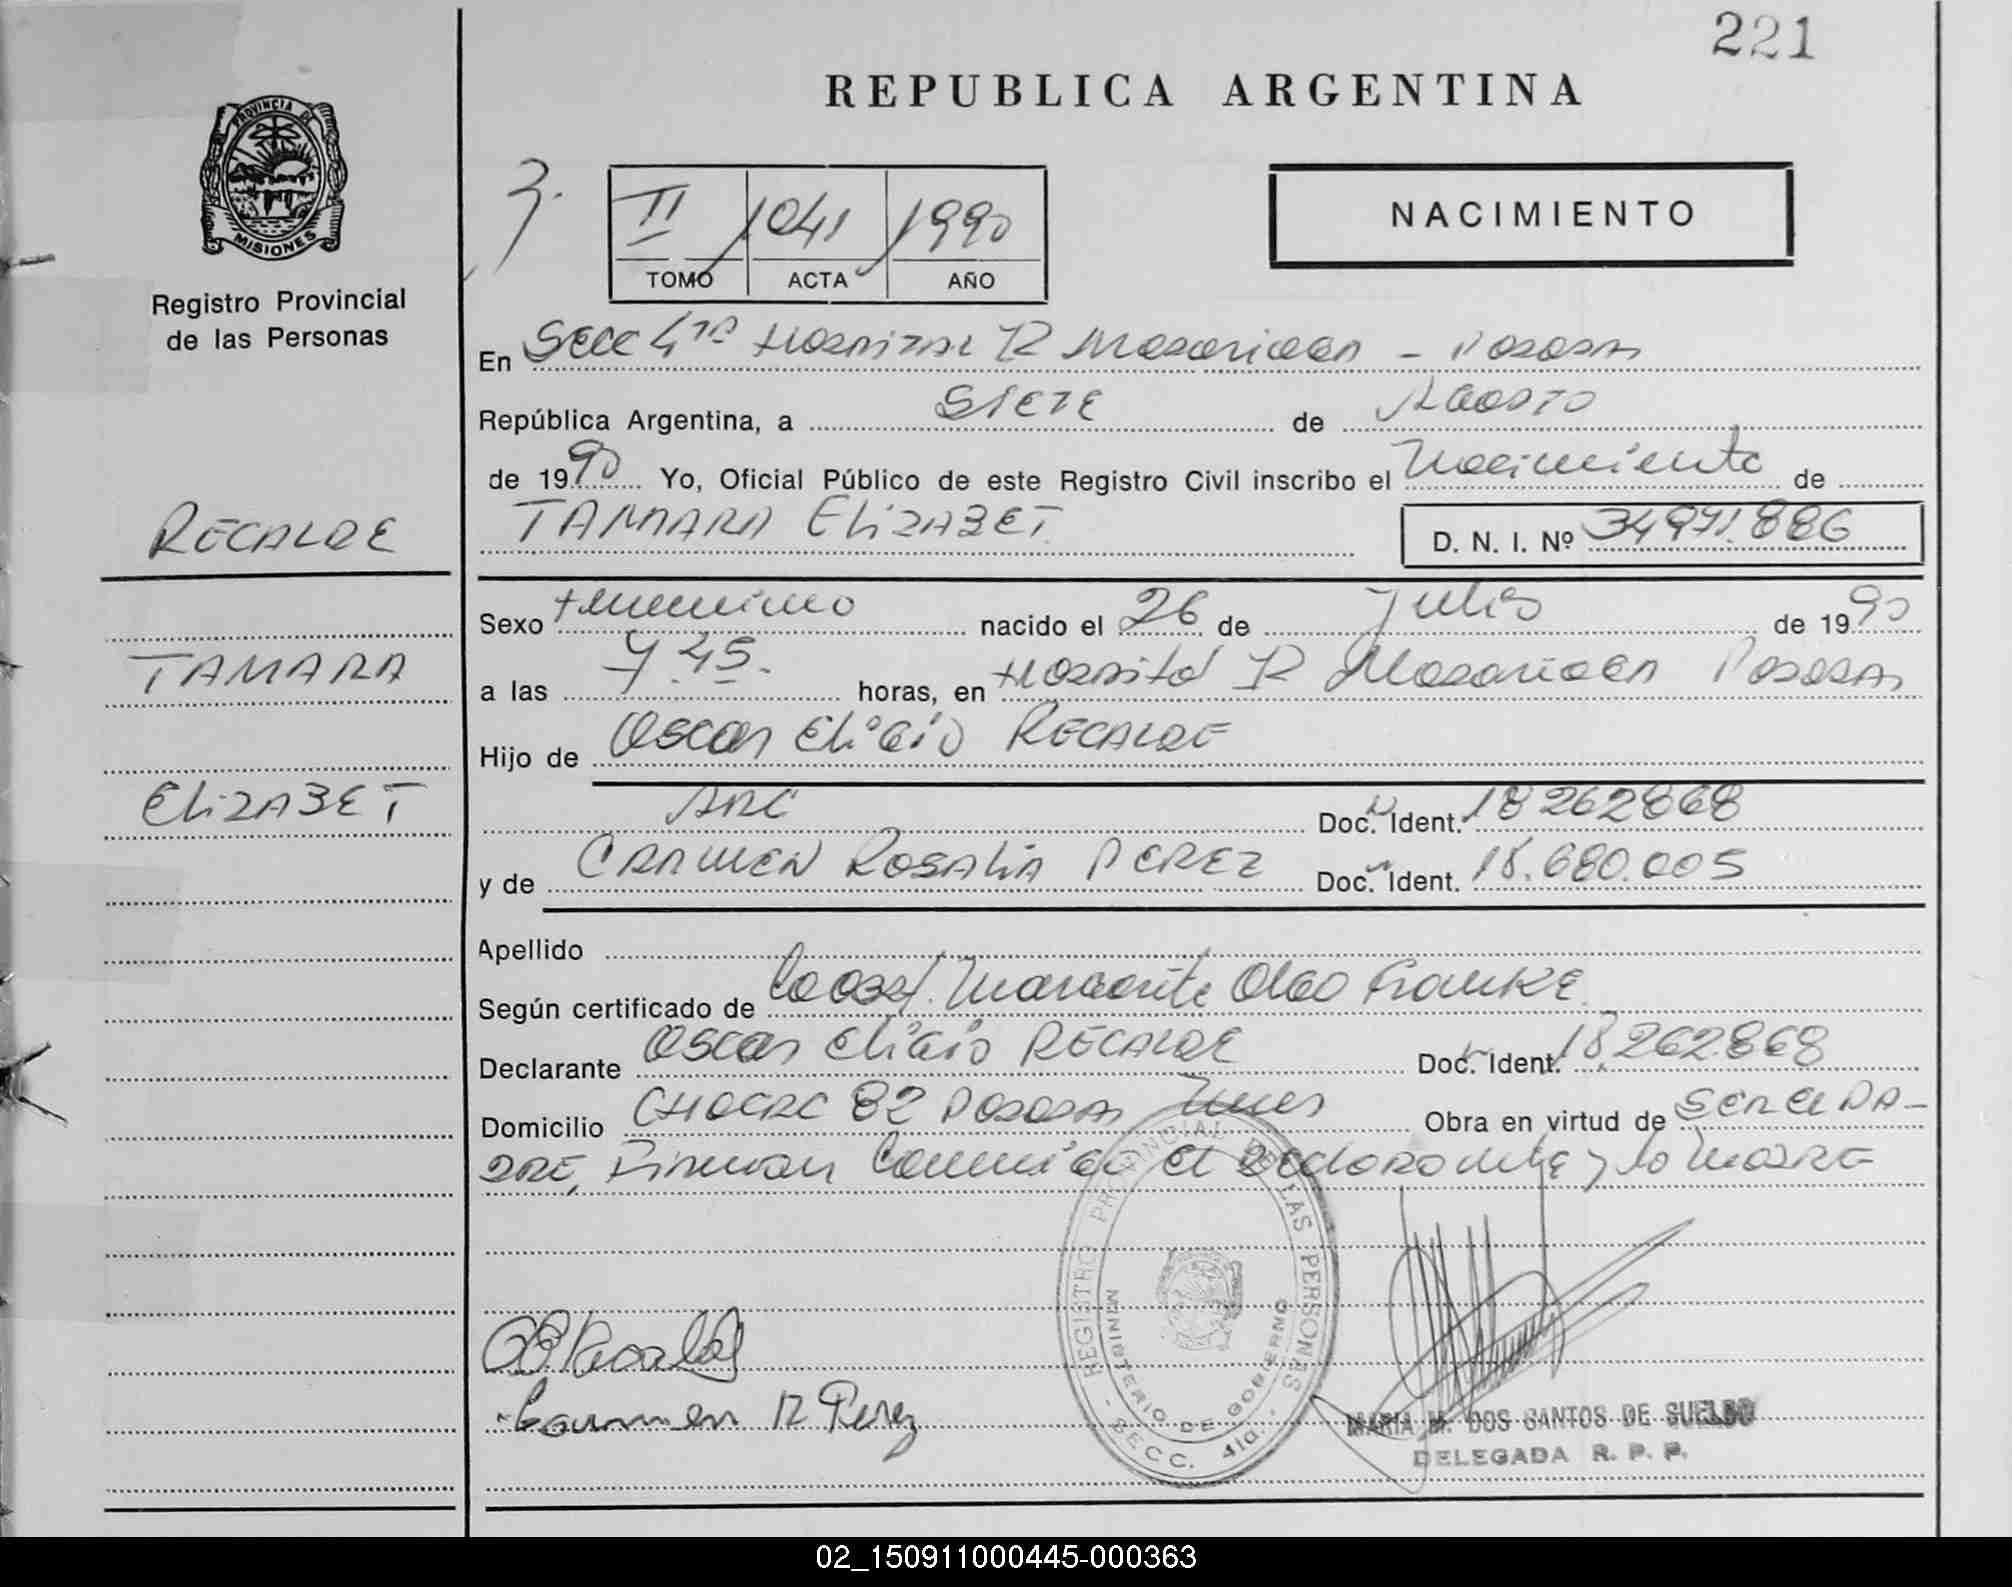 221
REPUBLICA ARGENTINA
PROVINCIA DE
MISIONES
Registro Provincial
de las Personas
II 1041 1990
TOMO ACTA AÑO
NACIMIENTO
En Secc 4ta Hospital R Madariaga - Posadas
República Argentina, a SIETE de Agosto
de 1990 Yo, Oficial Público de este Registro Civil inscribo el Nacimiento de
TAMARA ELIZABET D. N. I. Nº 34971.886
RECALDE
TAMARA
ELIZABET
Sexo femenino nacido el 26 de julio de 1990
a las 7.45. horas, en Hospital R Madariaga Posadas
Hijo de Oscar Eligio RECALDE
ARG Doc. Ident. 18262868
y de CARMEN ROSALIA PEREZ Doc. Ident. 18.680.005
Apellido
Según certificado de la obst. Margarita Olga Franke
Declarante Oscar Eligio RECALDE Doc. Ident. 18.262.868
Domicilio CHACRA 82 Posadas Mnes Obra en virtud de SER EL PA-
DRE, Firman Conmigo el declarante y la madre
REGISTRO PROVINCIAL DE LAS PERSONAS
MINISTERIO DE GOBIERNO
- SECC. 4ta. -
Carmen R Perez
MARIA M. DOS SANTOS DE SUELDO
DELEGADA R. P. P.
02_150911000445-000363